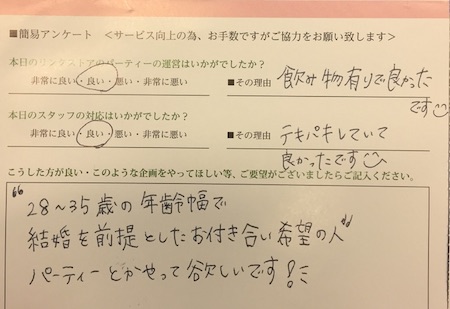 ■簡易アンケート ＜サービス向上の為、お手数ですがご協力をお願い致します＞
本日のリンクストアのパーティーの運営はいかがでしたか？
非常に良い・良い・悪い・非常に悪い
■その理由 飲み物有りで良かった
です
本日のスタッフの対応はいかがでしたか？
非常に良い・良い・悪い・非常に悪い
■その理由 テキパキしていて
良かったです
こうした方が良い・このような企画をやってほしい等、ご要望がございましたらご記入ください。
“28～35歳の年齢幅で
結婚を前提としたお付き合い希望の人”
パーティーとかやって欲しいです!